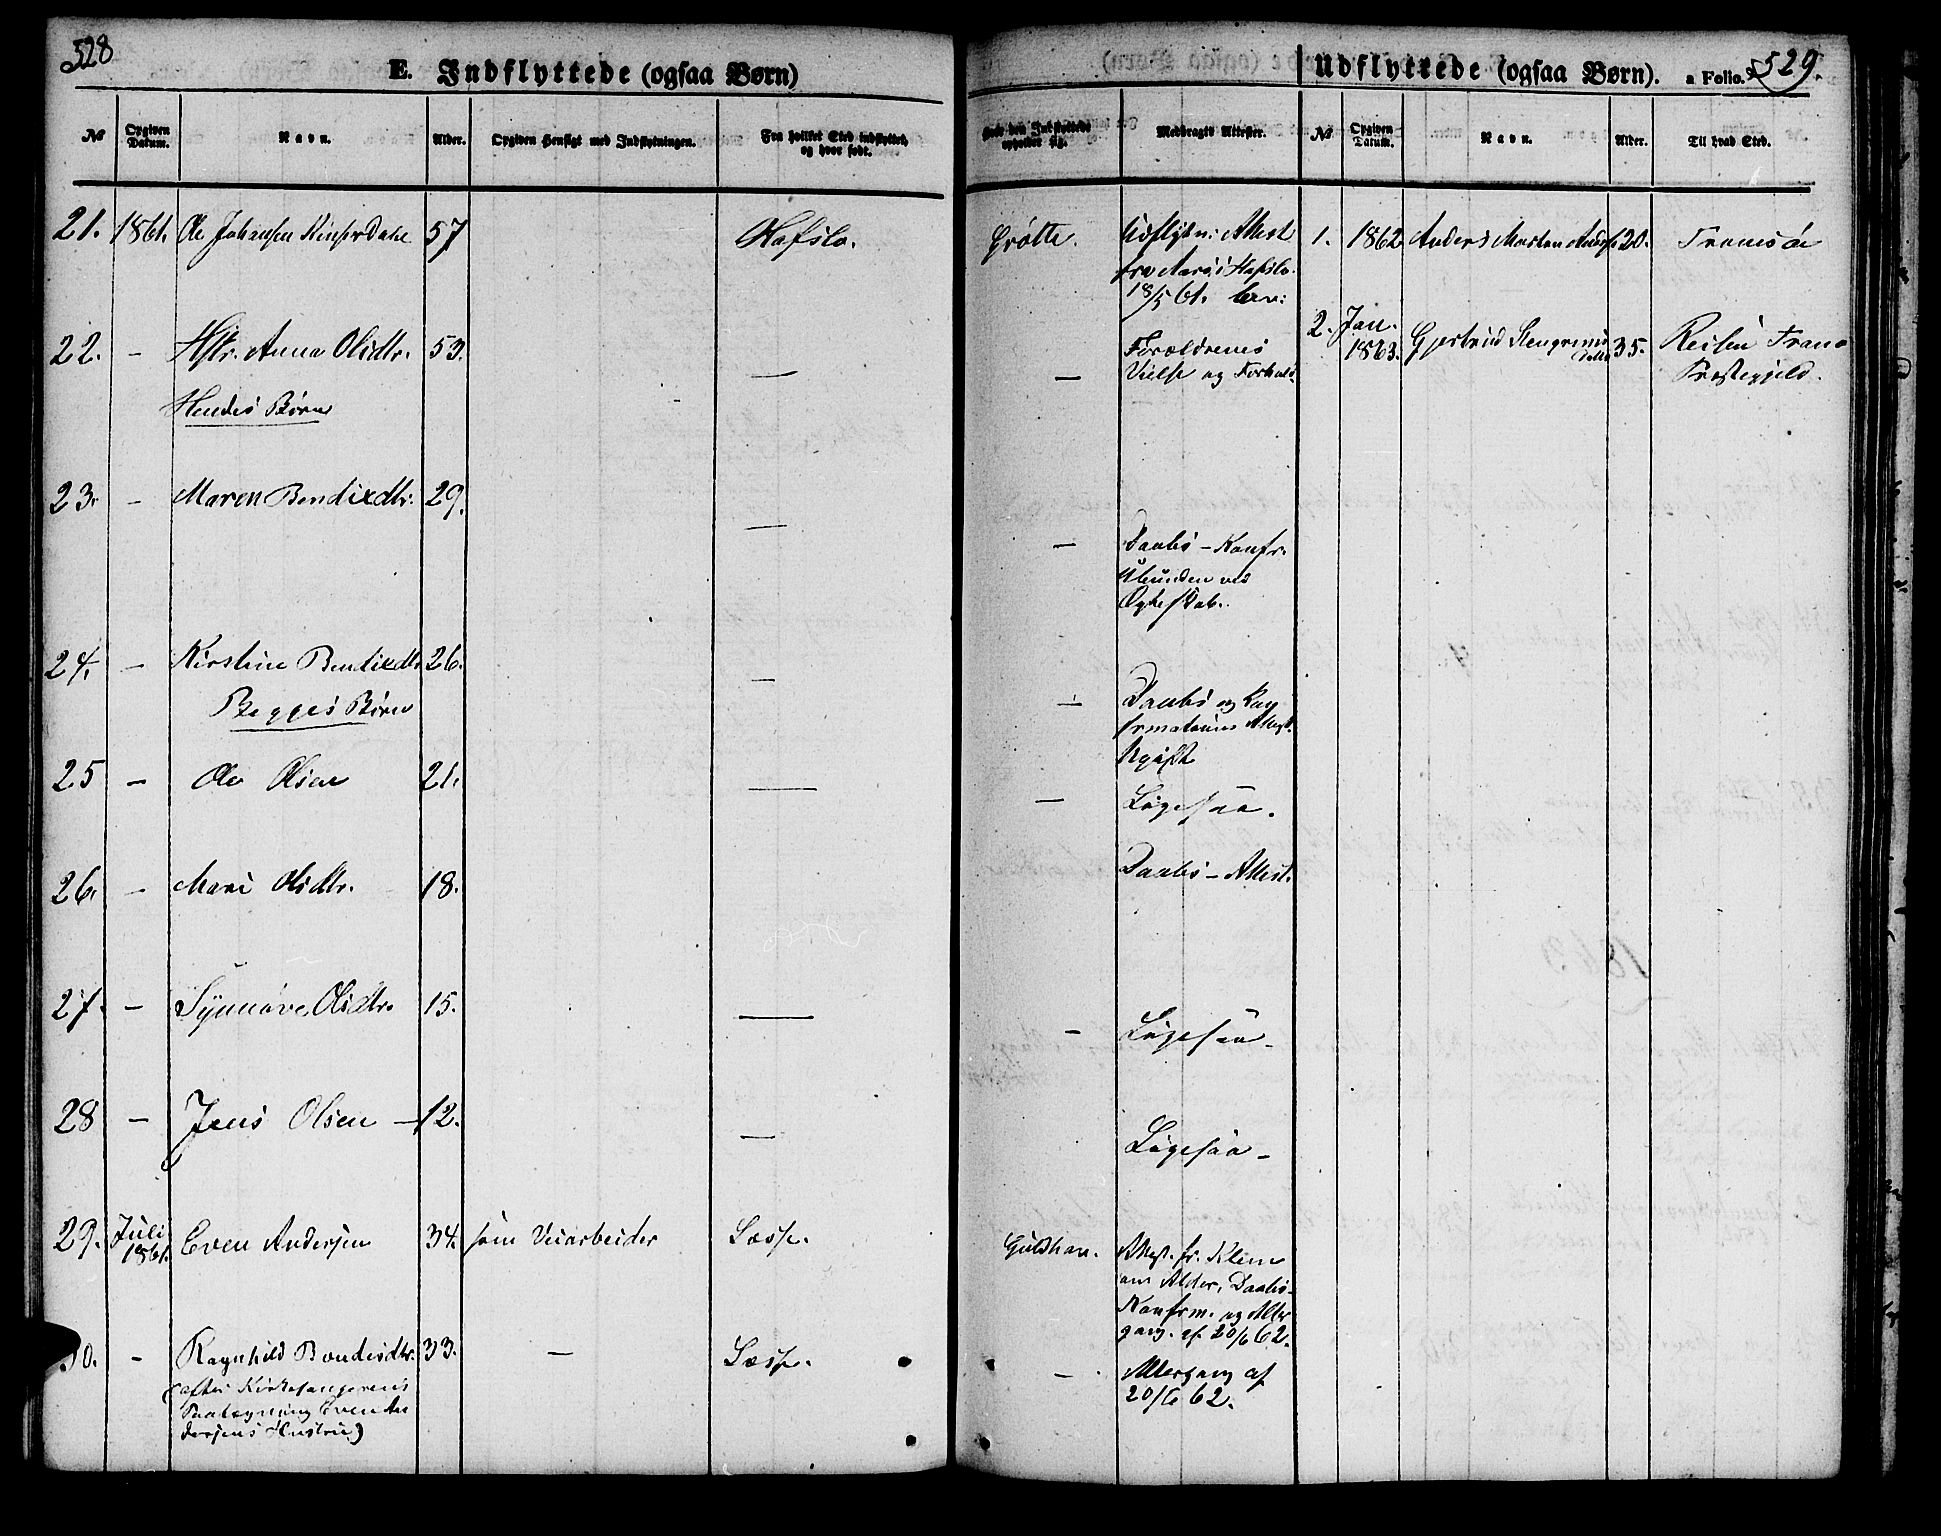 528
E. Indflyttede (ogsaa Børn)
№
Opgiven Datum.
Navn.
Alder.
Opgiven Hensigt med Indflytningen.
Fra hvilket Sted indflyttet, og hvor født.
21. 1861. Ole Johansen 57 Hafslo.
22. – Hstr. Anna Olsdtr. 53. —
Hendes Børn
23. – Maren Bendixdtr. 29. —
24. – Kirstine Bendixdtr. 26. —
Begges Børn
25 – Ole Olsen 21. —
26. – Mari Olsdtr. 18.
27. – Synnøve Olsdtr. 15. —
28 – Jens Olsen – 12. —
29. Juli 1861. Even Andersen 34. som Veiarbeider
30. – Ragnhild 33. —
(efter Kirkesangerens
Paategning Even An
dersens Hustru)
Udflyttede (ogsaa Børn). a Folio. 529.
Hvor den Indflyttede opholder sig.
Medbragte Attester.
№
Opgiven Datum.
Navn.
Alder.
Til hvad Sted.
Grøtte. Udflytn: Attest
fra Hafslo.
18/5 61.
– Forældrenes
Vielse og Forhold.
– Daabs – Konfr.
ved
Ægteskab.
– Daabs og Kon
firmations Attest.
Ugift
— Ligesaa.
Daabs – Attest.
– Ligesaa –
Ligesaa –
Attest fr.
om Alder, Daabs-
Konfirm. og Alter
gang. af 20/6 62.
– Altergang af
20/6 62.
1. 1862 Anders 20. Tromsøe
2. Jan. 1863. Gjertrud 35.
Præstegjeld.